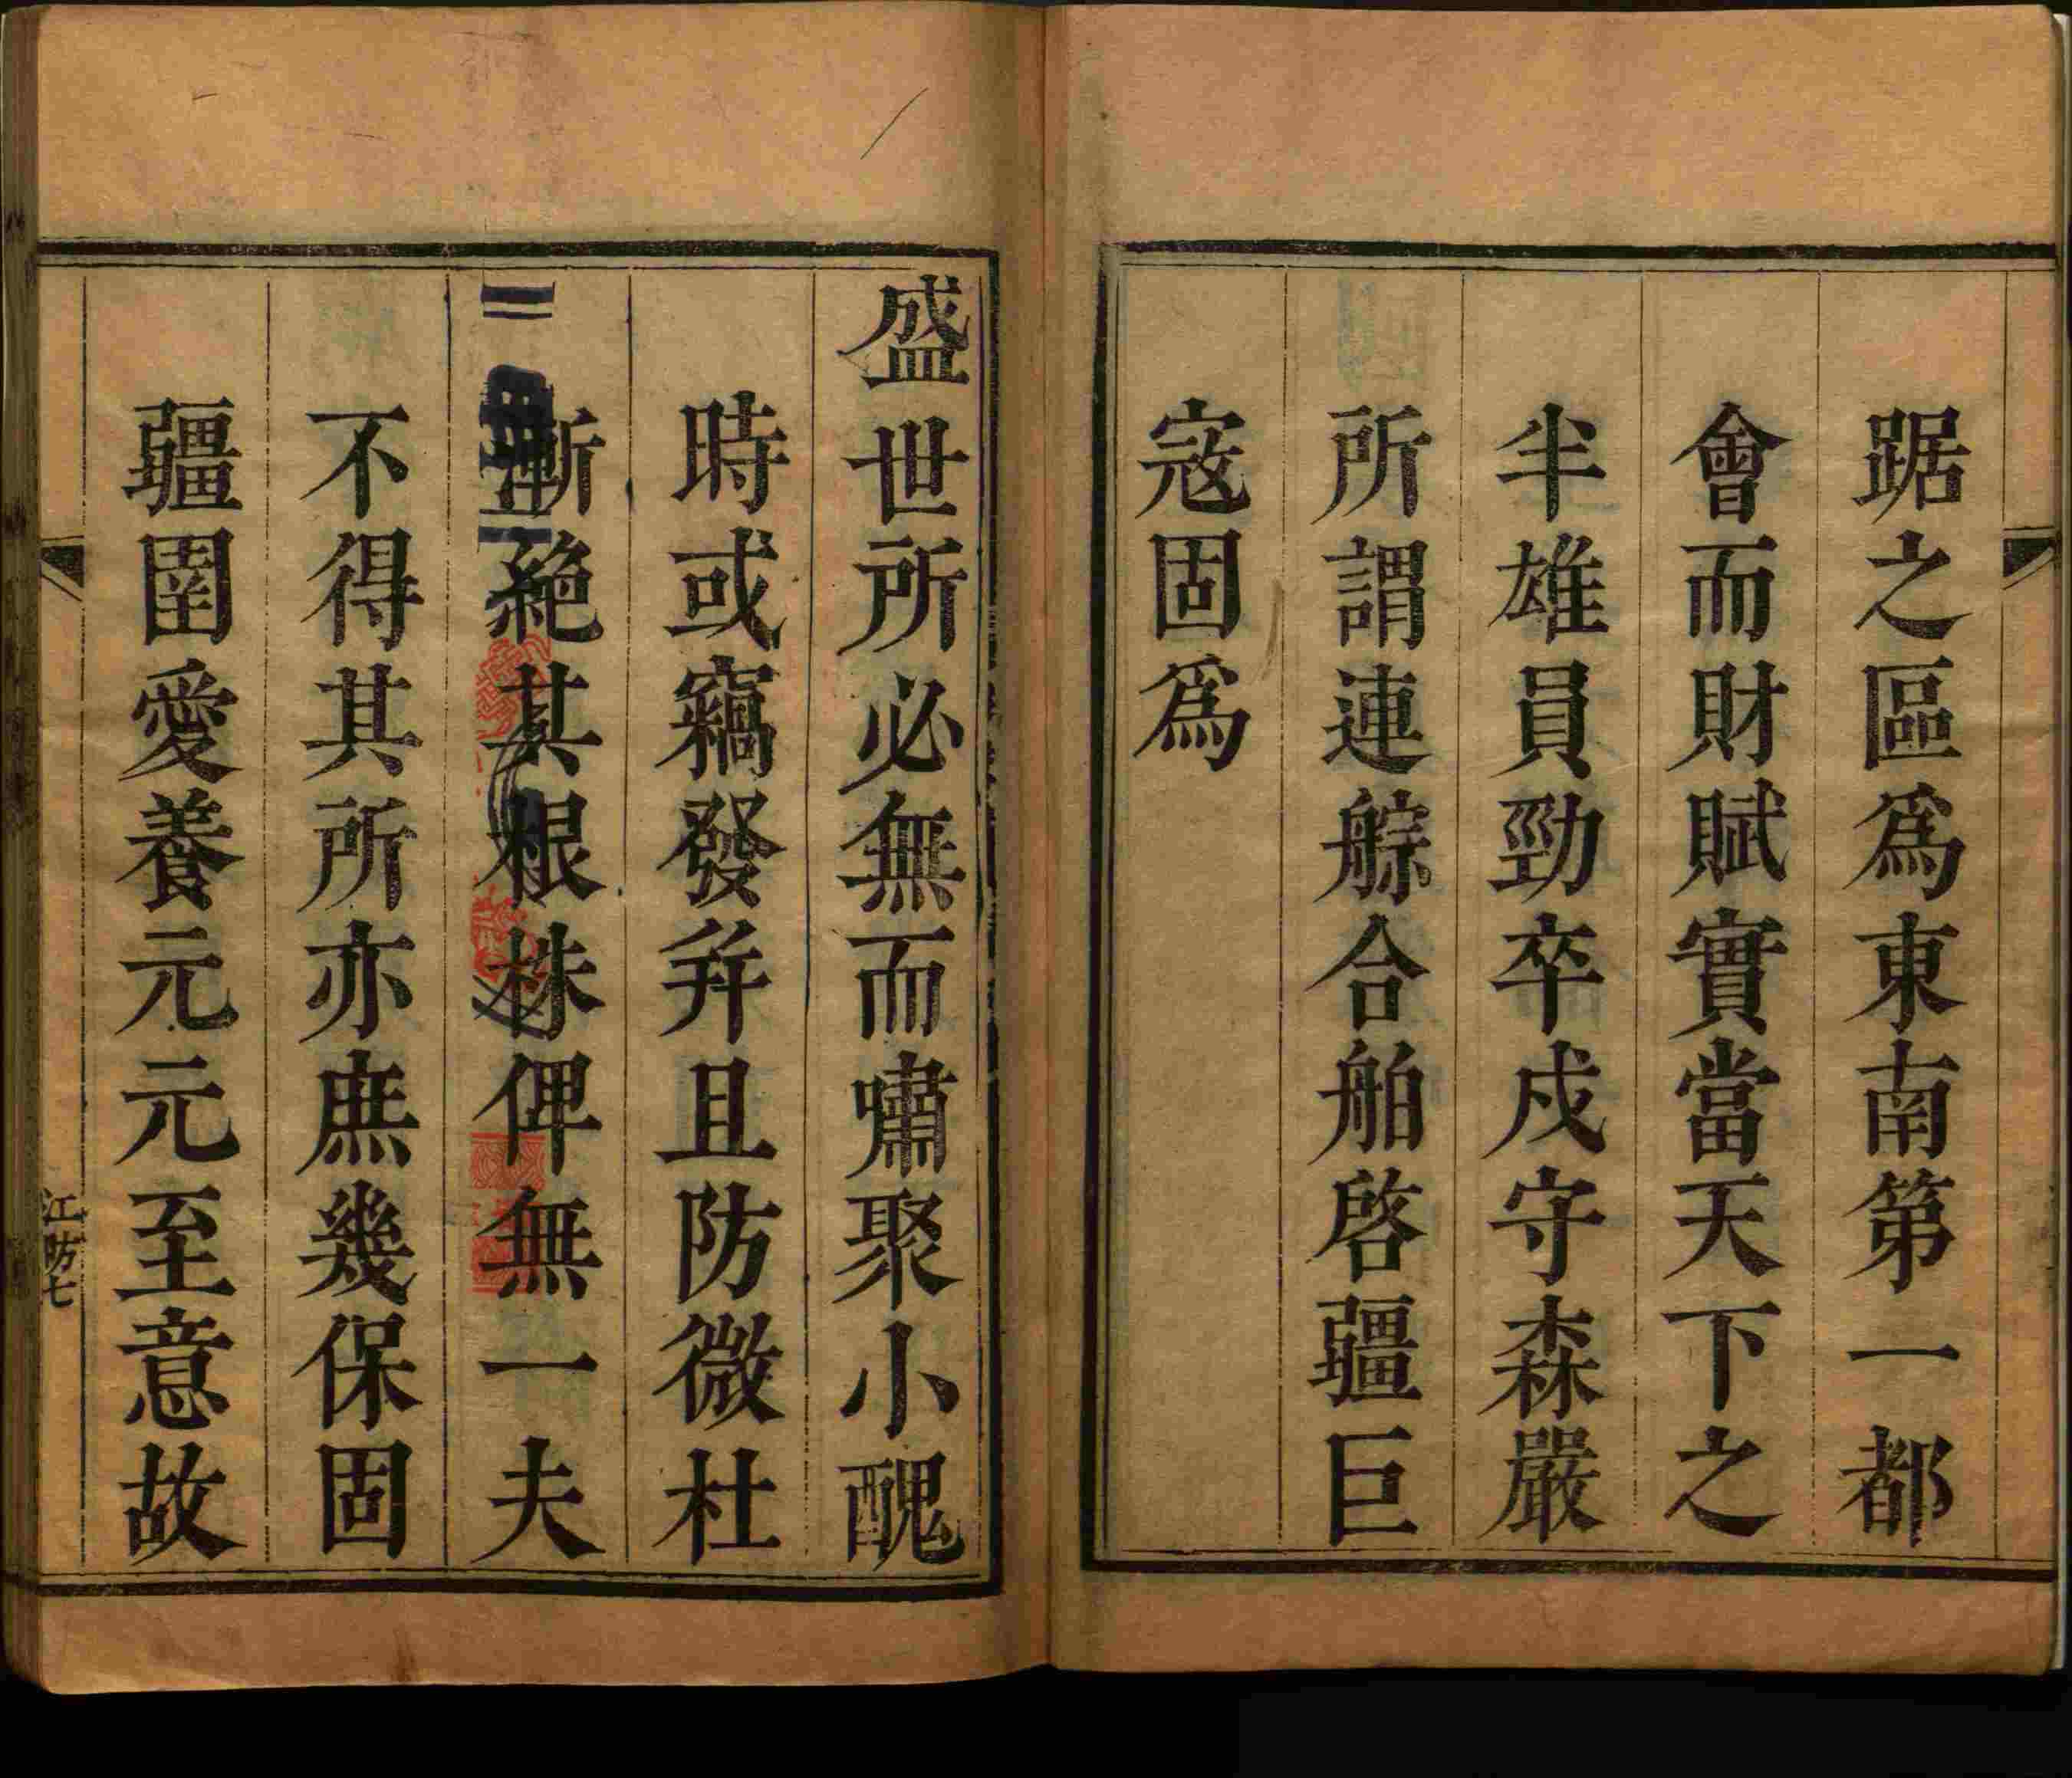 踞之區爲東南第一都
會而財賦實當天下之
半雄員勁卒戍守森嚴
所謂連䑸合舶啓疆巨
寇固爲
盛世所必無而嘯聚小醜
時或竊發并且防微杜
漸絶其根株俾無一夫
不得其所亦庶幾保固
疆圉愛養元元至意故
江防七